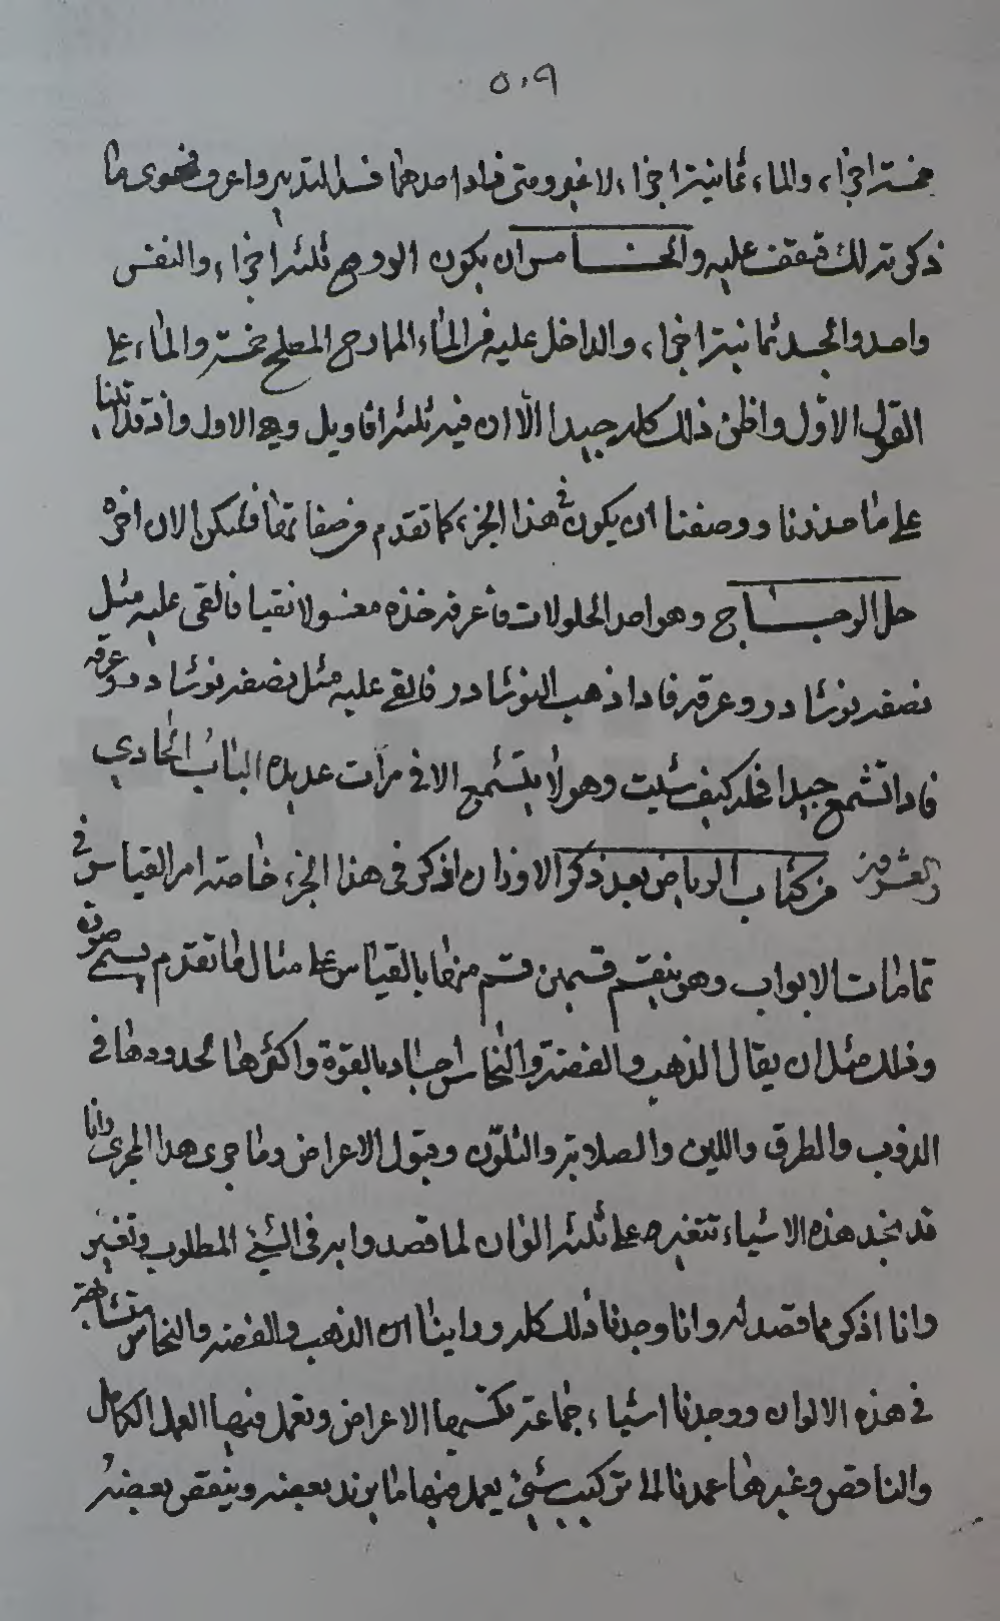 ٥٠٩
خمسة اجزاء والماء ثمانية اجزاء لا غير ومتى فسد احدهما فسد التدبير واعرف فحوى ما
ذكرته لك فتقف عليه والخامس ان يكون الروح ثلثة اجزاء والنفس
واحد والجسد ثمانية اجزاء والداخل عليه من الماء المصلح خمسة والماء على
القول الاول واظن ذلك كله جيدا الا ان فيه ثلثة اقاويل وهو الاول واذ قد
على ما حددنا ووصفنا ان يكون في هذا الجزء كما تقدم فليكن الان اخره
حل الزجاج وهو احد الحلولات فاعرفه خذه مغسولا نقيا فالقى عليه مثل
نصفه نوشادر وعرقه فاذا ذهب النوشادر فالق عليه مثل نصفه نوشادر وعرقه
فاذا تشمع جيدا فحله كيف شئت وهو لا يتشمع الا في مرات عديدة الباب الحادي
والعشرون من كتاب الرياض بعد ذكر الاوزان اذكر في هذا الجزء خاصة امر القياس في
تمامات الابواب وهو ينقسم قسمين قسم منها بالقياس على مثال ما تقدم
وذلك مثل ان يقال الذهب والفضة والنحاس اجساد بالقوة واكثرها لحدودها في
الذوب والطرق واللين والصلابة والتلون وقبول الاعراض وما جرى هذا المجرى وانا
قد نجد هذه الاشياء تتغير على ثلثة الوان لما قصدوا به في الشئ المطلوب وتغير
وانا اذكر ما قصد له وانا وجدنا ذلك كله وراينا ان الذهب والفضة والنحاس متشابهة
في هذه الالوان ووجدنا اشياء جماعة تكسبها الاعراض وتعمل فيها العمل الكامل
والناقص وغيرها عمدنا الى تركيب شئ يعمل منها ما يزيد بعضه وينقص بعضه